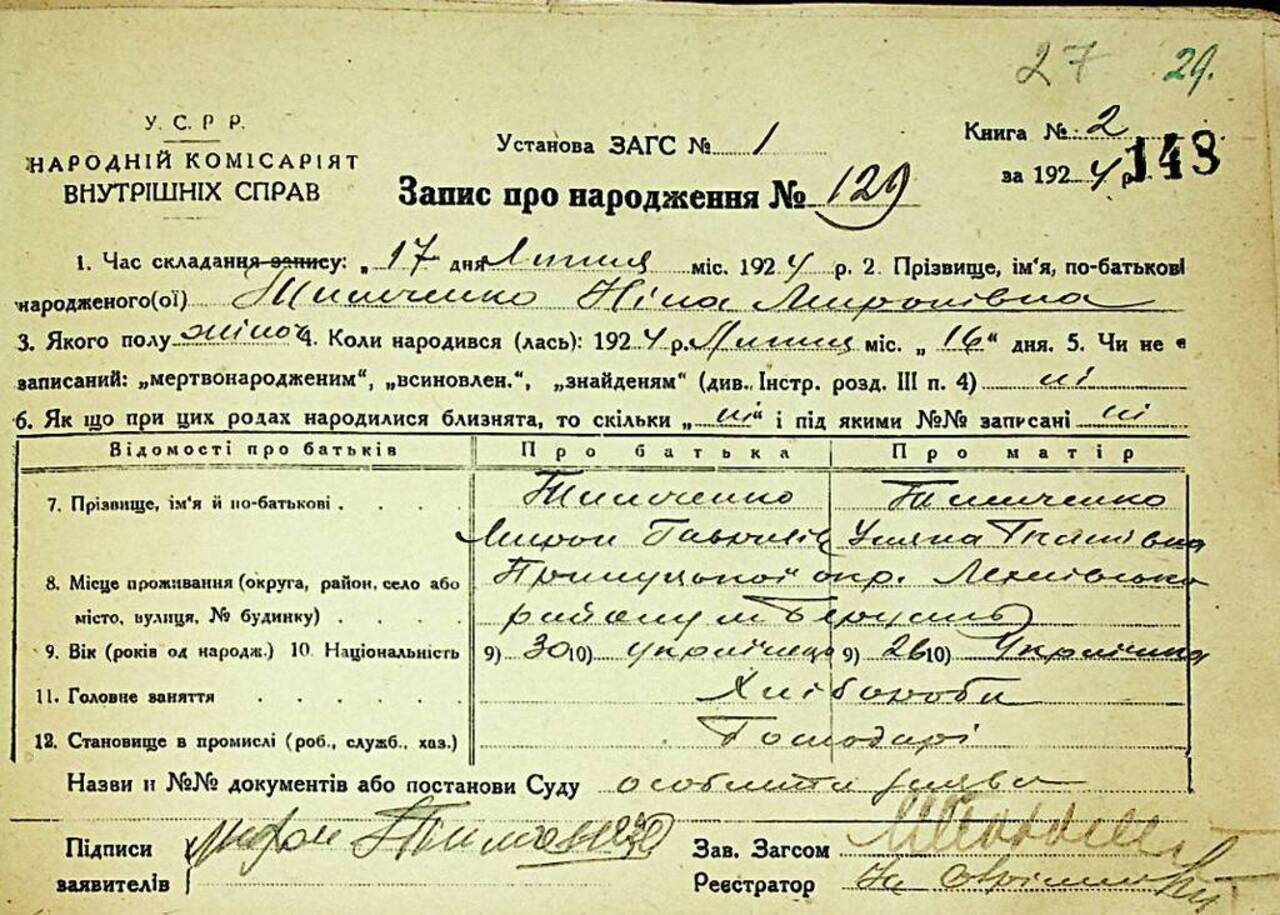 27 29.
У. С. Р Р.
НАРОДНІЙ КОМІСАРІЯТ
ВНУТРІШНІХ СПРАВ
Установа ЗАГС № 1
Книга № 2
за 1924 р. 143
Запис про народження № 129
1. Час складання запису: „ 17 дня Липня міс. 1924 р. 2. Прізвище, ім'я, по-батькові
народженого(ої) Тимченко Ніна Миронівна
3. Якого полу жіноч 4. Коли народився (лась): 1924 р. Липня міс. „ 16 “ дня. 5. Чи не є
записаний: „мертвонародженим“, „всиновлен.“, „знайденям“ (див. Інстр. розд. III п. 4) ні
6. Як що при цих родах народилися близнята, то скільки „ ні “ і під якими №№ записані ні
Відомості про батьків Про батька Про матір
7. Прізвище, ім'я й по-батькові . . . . Тимченко Тимченко
Мирон Гаврилів Уляна
8. Місце проживання (округа, район, село або Прилуцької окр.
місто, вулиця, № будинку) . . . . району
9. Вік (років од народж.) 10. Національність 9) 30 10) українець 9) 26 10) Українка
11. Головне заняття . . . . . Хлібороби
12. Становище в промислі (роб., служб., хаз.) Господарі
Назви й №№ документів або постанови Суду особиста заява
Підписи
заявителів Мирон Тимченко
Зав. Загсом
Реєстратор